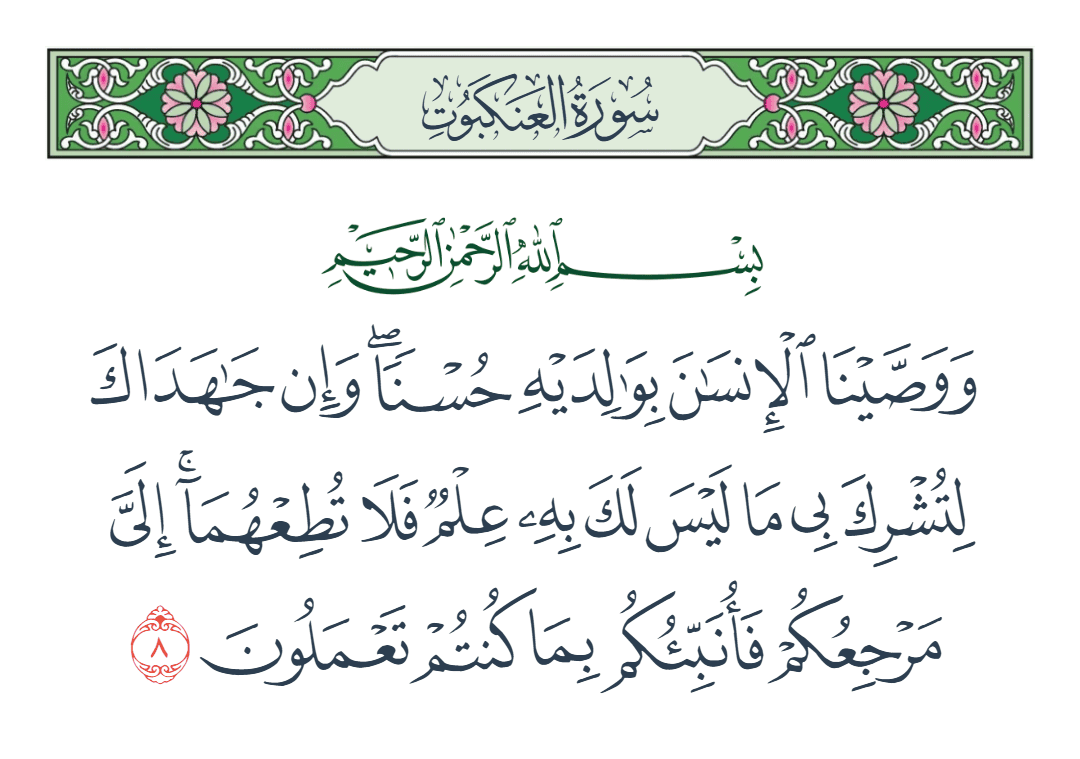 سُورَةُ الْعَنكَبُوتِ
بِسْمِ ٱللَّهِ ٱلرَّحْمَٰنِ ٱلرَّحِيمِ
وَوَصَّيْنَا ٱلْإِنسَٰنَ بِوَٰلِدَيْهِ حُسْنًاۖ وَإِن جَٰهَدَاكَ
لِتُشْرِكَ بِى مَا لَيْسَ لَكَ بِهِۦ عِلْمٌ فَلَا تُطِعْهُمَآۚ إِلَىَّ
مَرْجِعُكُمْ فَأُنَبِّئُكُم بِمَا كُنتُمْ تَعْمَلُونَ ٨